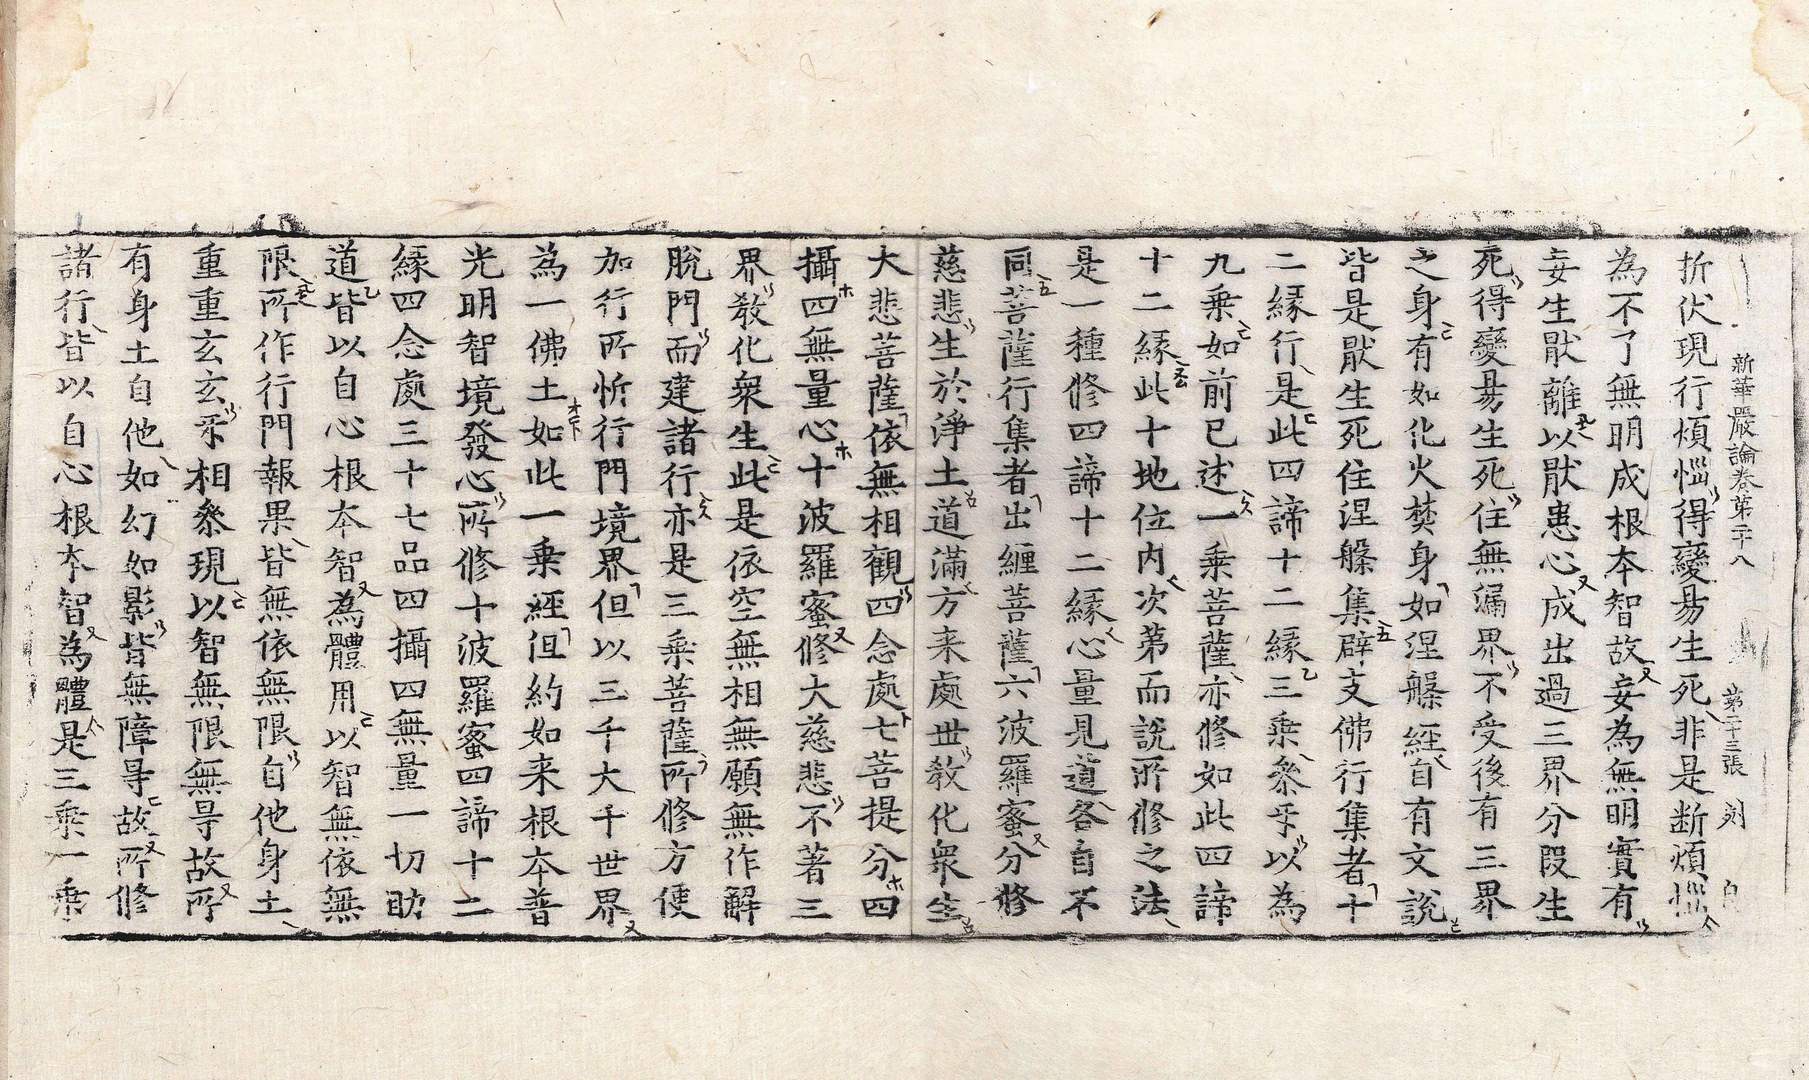 新華嚴論卷第二十八 第二十三張
折伏現行煩惱得變易生死非是断煩惱
為不了無明成根本智故妄為無明實有
妄生猒離以猒患心成出過三界分段生
死得變易生死住無漏界不受後有三界
之身有如化火焚身如涅槃經自有文說
皆是猒生死住涅槃集辟支佛行集者十
二緣行是此四諦十二緣三乗叅乎以為
九乗如前已述一乗菩薩亦修如此四諦
十二緣此十地位內次第而說所修之法
是一種修四諦十二緣心量見道各自不
同菩薩行集者出纏菩薩六波羅蜜分修
慈悲生於淨土道滿方来處世教化衆生
大悲菩薩依無相觀四念處七菩提分四
攝四無量心十波羅蜜修大慈悲不著三
界教化衆生此是依空無相無願無作解
脫門而建諸行亦是三乗菩薩所修方便
加行所忻行門境界但以三千大千世界
為一佛土如此一乗經但約如来根本普
光明智境發心所修十波羅蜜四諦十二
緣四念處三十七品四攝四無量一切助
道皆以自心根本智為體用以智無依無
限所作行門報果皆無依無限自他身土
重重玄玄乎相叅現以智無限無㝵故所
有身土自他如幻如影皆無障㝵故所修
諸行皆以自心根本智為體是三乗一乗